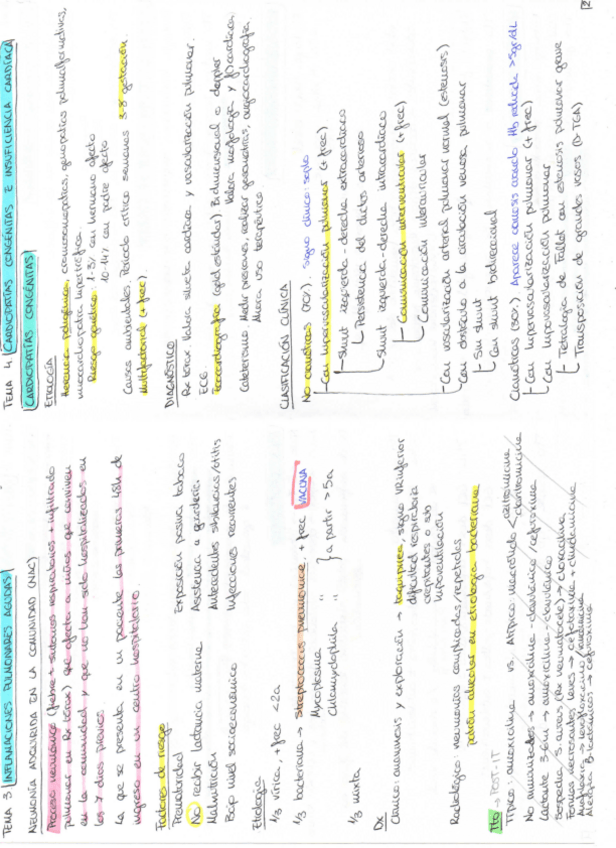 TEMA 3 INFLAMACIONES PULMONARES AGUDAS
NEUMONÍA ADQUIRIDA EN LA COMUNIDAD (NAC)
Proceso neumónico (fiebre + síntomas respiratorios + infiltrado
pulmonar en Rx tórax) que afecta a niños que conviven
en la comunidad y que no han sido hospitalizados en
los 7 días previos
La que se presenta en un paciente las primeras 48h de
ingreso en un centro hospitalario.
Factores de riesgo
Prematuridad
No recibir lactancia materna
Malnutrición
Bajo nivel socioeconómico
Exposición pasiva tabaco
Asistencia a guardería
Antecedentes sibilancias/otitis
Infecciones recurrentes
Etiología
1/3 vírica, + frec <2a
1/3 bacteriana → Streptococcus pneumoniae + frec VACUNA
Mycoplasma "
Chlamydophila " } a partir > 5a
1/3 mixta
Dx
Clínico: anamnesis y exploración → taquipnea, signo VR inferior
dificultad respiratoria
crepitantes o sub
hipoventilación
Radiológico: neumonías complicadas/repetidas
patrón alveolar en etiología bacteriana
Tto → POST-IT
Típica: amoxicilina vs. Atípica macrólido < azitromicina
claritromicina
No inmunizados → amoxicilina-clavulánico / cefuroxima
Lactante 3-6m → amoxicilina-clavulánico
Sospecha S. aureus (Rx neumatocele) → cloxacilina
Formas necrosantes leves → cefotaxima + clindamicina
Alergia β-lactámicos → cefuroxima
TEMA 4 CARDIOPATÍAS CONGÉNITAS E INSUFICIENCIA CARDÍACA
CARDIOPATÍAS CONGÉNITAS
ETIOLOGÍA
Herencia poligénica, cromosomopatías, genopatías polimalformativas,
miocardiopatía hipertrófica.
Riesgo genético: 1-3% con hermano afecto
10-14% con padre afecto
Causas ambientales. Período crítico semanas 3-8 gestación.
Multifactorial (+ frec)
DIAGNÓSTICO
Rx tórax. Valora silueta cardíaca y vascularización pulmonar.
ECG.
Ecocardiografía (gold estándar) Bidimensional o doppler
Valora morfología y f(x) cardíaca
Cateterismo. Medir presiones, realizar gasometrías, angiocardiografía.
Mucho uso terapéutico.
CLASIFICACIÓN CLÍNICA
No cianóticas (70%). Signo clínico: soplo
Con hipervascularización pulmonar (+ frec)
Shunt izquierda-derecha extracardíaco
Persistencia del ductus arterioso
Shunt izquierda-derecha intracardíaco
Comunicación interventricular (+ frec)
Comunicación interauricular
Con vascularización arterial pulmonar normal (estenosis)
Con obstáculo a la circulación venosa pulmonar
Sin shunt
Con shunt bidireccional
Cianóticas (30%.) Aparece cianosis cuando Hb reducida >5gr/dL
Con hipervascularización pulmonar (+ frec)
Con hipovascularización pulmonar
Tetralogía de Fallot con estenosis pulmonar grave
Transposición de grandes vasos (D-TGA)
2